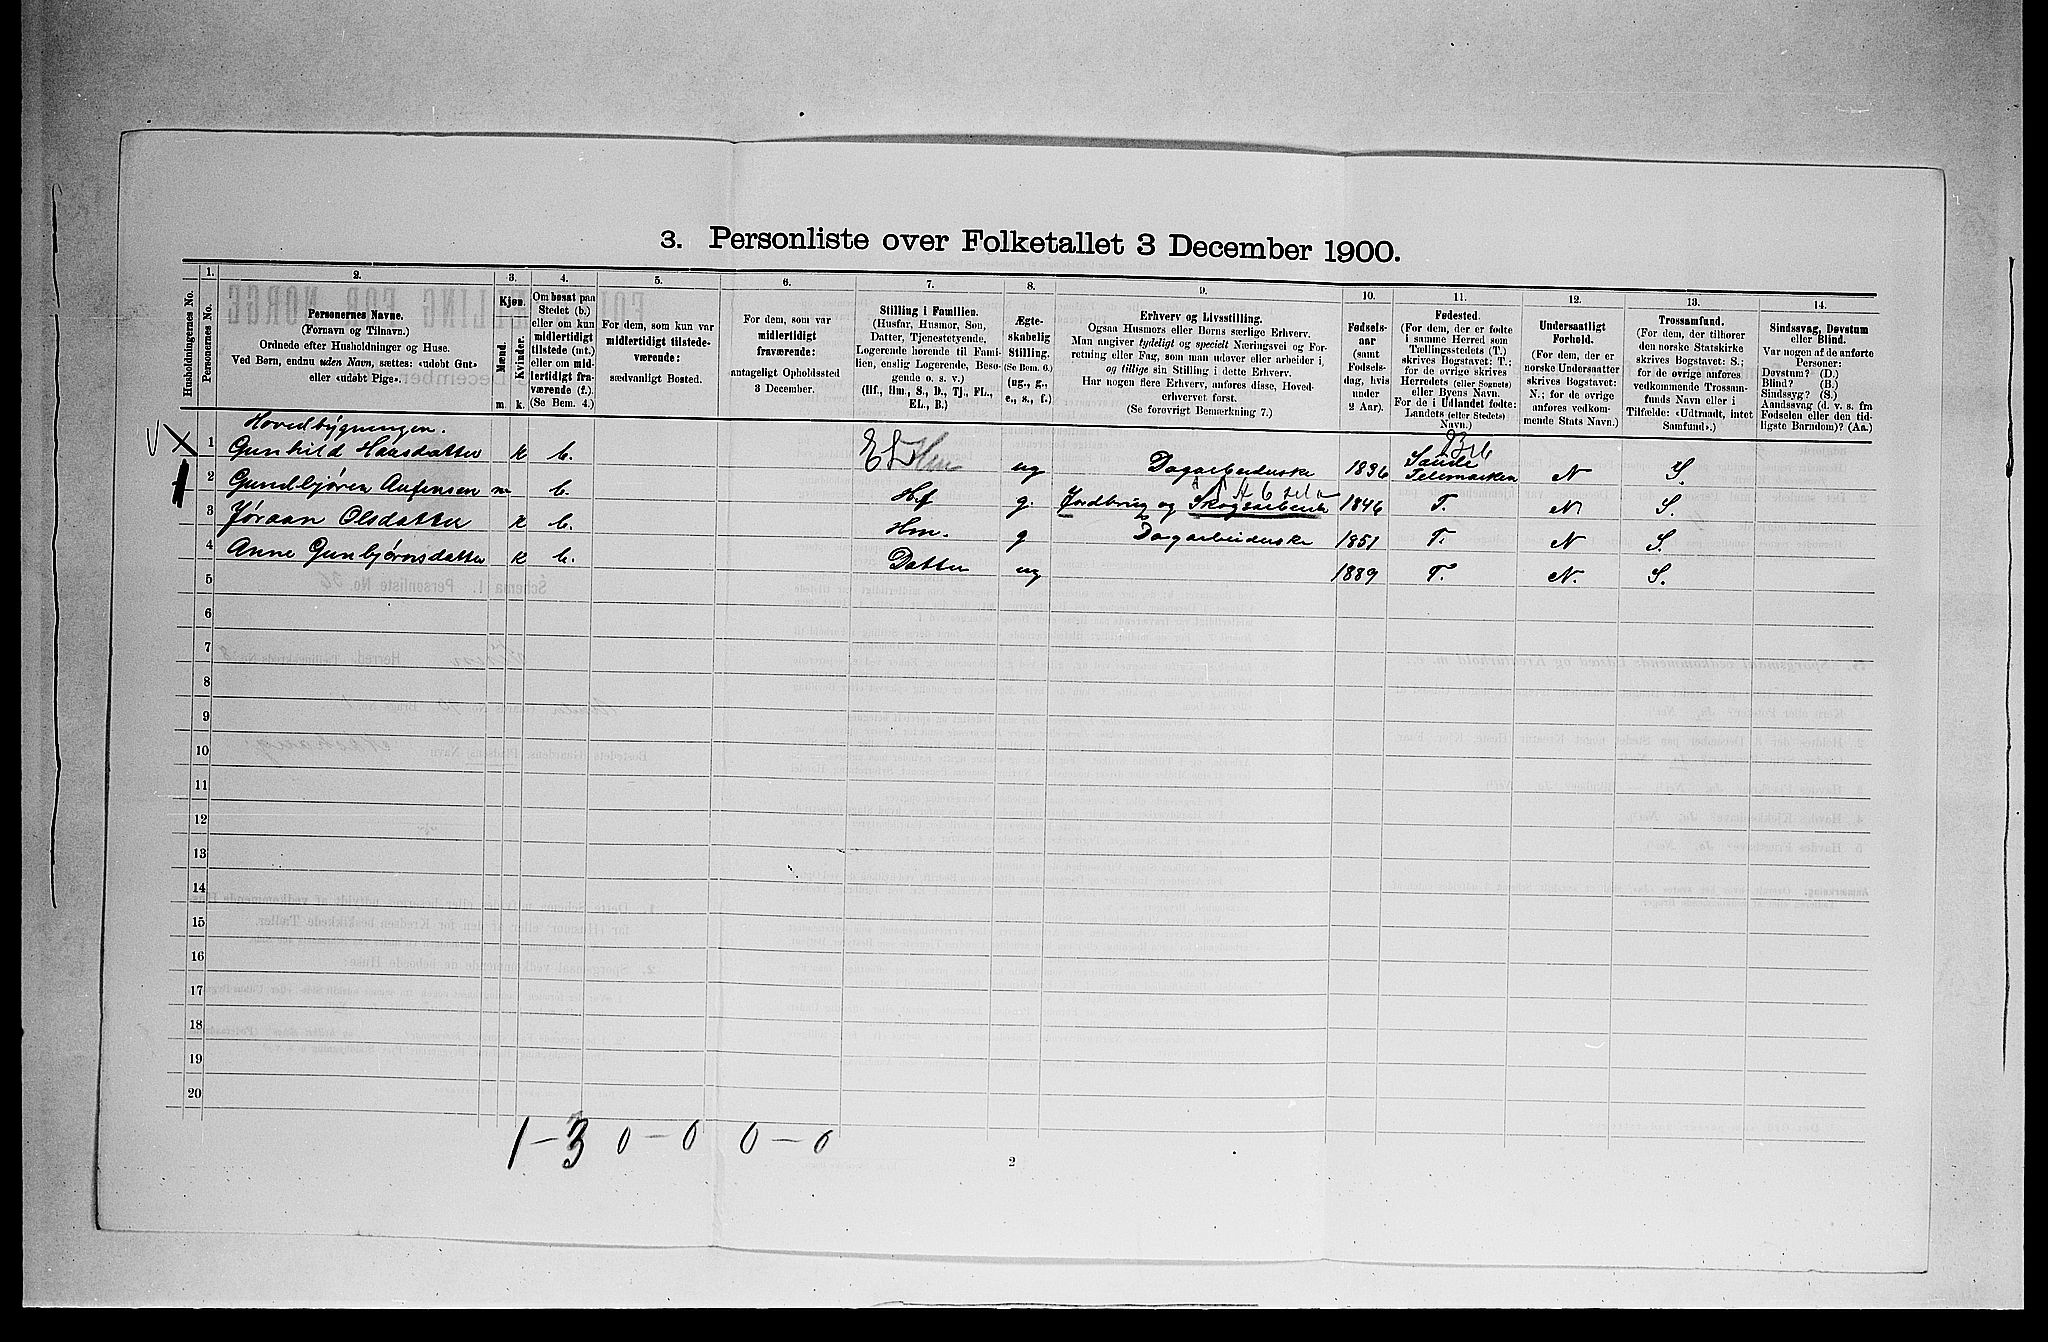 3. Personliste over Folketallet 3 December 1900.
Husholdningernes No.
1.
Personernes No.
2.
Personernes Navne.
(Fornavn og Tilnavn.)
Ordnede efter Husholdninger og Huse.
Ved Børn, endnu uden Navn, sættes: «udøbt Gut»
eller «udøbt Pige».
3.
Kjøn.
Mænd.
Kvinder.
m. k.
4.
Om bosat paa
Stedet (b.)
eller om kun
midlertidigt
tilstede (mt.)
eller om mid-
lertidigt fra-
værende (f.).
(Se Bem. 4.)
5.
For dem, som kun var
midlertidigt tilstede-
værende:
sædvanligt Bosted.
6.
For dem, som var
midlertidigt
fraværende:
antageligt Opholdssted
3 December.
7.
Stilling i Familien.
(Husfar, Husmor, Søn,
Datter, Tjenestetyende,
Logerende hørende til Fami-
lien, enslig Logerende, Besø-
gende o. s. v.)
(Hf., Hm., S., D., Tj., FL.,
EL., B.)
8.
Ægte-
skabelig
Stilling.
(Se Bem. 6.)
(ug., g.,
e., s., f.)
9.
Erhverv og Livsstilling.
Ogsaa Husmors eller Børns særlige Erhverv.
Man angiver tydeligt og specielt Næringsvei og For-
retning eller Fag, som man udøver eller arbeider i,
og tillige sin Stilling i dette Erhverv.
Har nogen flere Erhverv, anføres disse, Hoved-
erhvervet først.
(Se forøvrigt Bemærkning 7.)
10.
Fødsels-
aar
(samt
Fødsels-
dag, hvis
under
2 Aar).
11.
Fødested.
(For dem, der er fødte
i samme Herred som
Tællingsstedets (T.)
skrives Bogstavet: T.;
for de øvrige skrives
Herredets (eller Sognets)
eller Byens Navn.
For de i Udlandet fødte:
Landets (eller Stedets)
Navn.)
12.
Undersaatligt
Forhold.
(For dem, der er
norske Undersaatter
skrives Bogstavet:
N.; for de øvrige
anføres vedkom-
mende Stats Navn.)
13.
Trossamfund.
(For dem, der tilhører
den norske Statskirke
skrives Bogstavet: S.;
for de øvrige anføres
vedkommende Trossam-
funds Navn eller i
Tilfælde: «Udtraadt, intet
Samfund».)
14.
Sindssvag, Døvstum
eller Blind.
Var nogen af de anførte
Personer:
Døvstum? (D.)
Blind? (B.)
Sindssyg? (S.)
Aandssvag (d. v. s. fra
Fødselen eller den tid-
ligste Barndom)? (Aa.)
Hovedbygningen.
V X 1 Gunhild Haasdatter k b. EL Hm ug Dagarbeiderske 1836 Saude Telemarken N S.
2 Gundbjøren Aufensen m b. Hf g. Jordbrug og Skogsarbeide 1846 T. N S.
3 Jøraan Olsdatter k b. Hm. g Dagarbeiderske 1851 T. N S.
4 Anne Gunbjørnsdatter k b. Datter ug 1889 T. N. S.
5
6
7
8
9
10
11
12
13
14
15
16
17
18
19
20
1 – 3 0 – 0 0 – 0
2